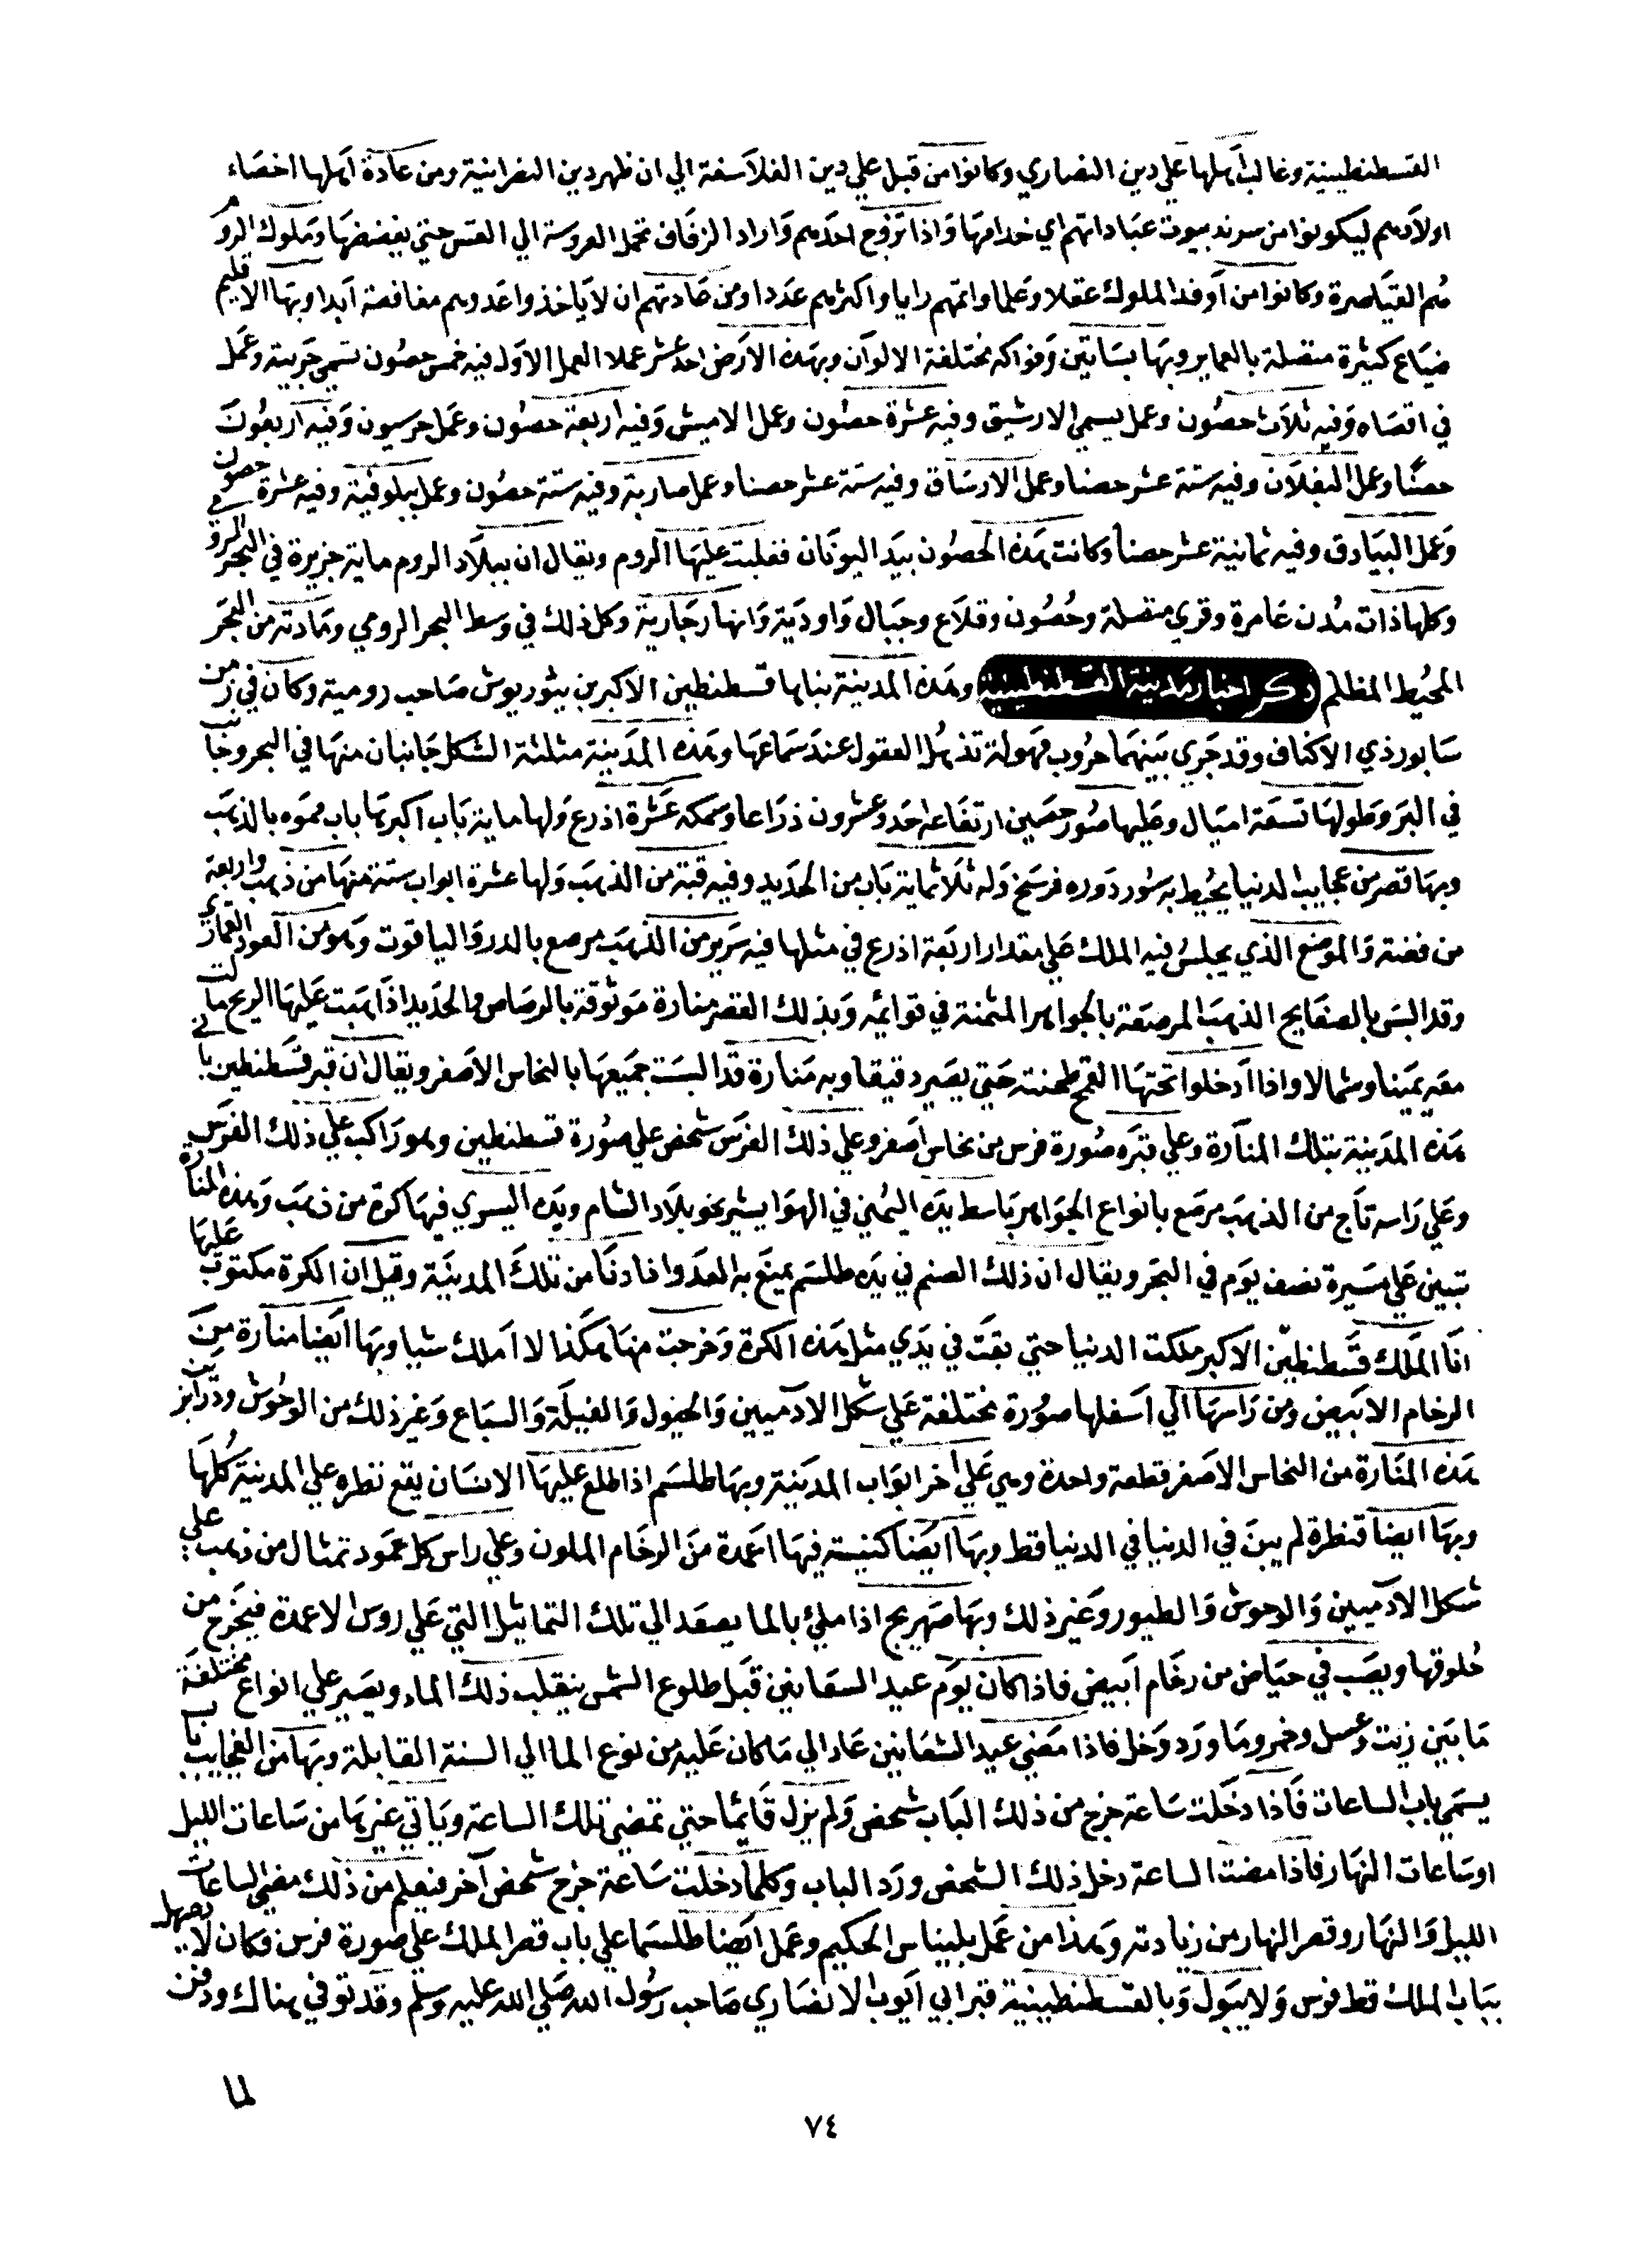 القسطنطينية وغالب اهلها علي دين النصاري وكانوا من قبل علي دين الفلاسفة الي ان ظهر دين النصرانية ومن عادة اهلها اخصاء
اولادهم ليكونوا من سدنة بيوت عباداتهم اي خدامها واذا تزوج احدهم واراد الزفاف تحمل العروسة الي القس حتي يفضضها وملوك الروم
هم القياصرة وكانوا من اوفد الملوك عقلا وعلما واتمهم رايا واكثرهم عددا ومن عادتهم ان لا ياخذوا عدوهم مغافصة ابدا وبهذا الاقليم
ضياع كثيرة متصلة بالعماير وبها بساتين وفواكه مختلفة الالوان وبهذه الارض احد عشر عملا العمل الاول فيه خمس حصون تسمي جربية وعمل
في اقصاه وفيه ثلاث حصون وعمل يسمي الارشيق وفيه عشرة حصون وعمل الاميش وفيه اربعة حصون وعمل حرسيون وفيه اربعون
حصنا وعمل البقلان وفيه ستة عشر حصنا وعمل الارساق وفيه ستة عشر حصنا وعمل صارية وفيه ستة حصون وعمل ببلوقية وفيه عشرة حصون
وعمل البيادق وفيه ثمانية عشر حصنا وكانت هذه الحصون بيد اليونان فغلبت عليها الروم ويقال ان ببلاد الروم ماية جزيرة في البحر الرومي
وكلها ذات مدن عامرة وقري متصلة وحصون وقلاع وجبال واودية وانهار جارية وكل ذلك في وسط البحر الرومي ومادته من البحر
المحيط المظلم ذكر اخبار مدينة القسطنطينية وهذه المدينة بناها قسطنطين الاكبر بن بيثوريوش صاحب رومية وكان في زمن
سابور ذي الاكتاف وقد جري بينهما حروب مهولة تذهل العقول عند سماعها وهذه المدينة مثلثة الشكل جانبان منها في البحر وجانب
في البر وطولها تسعة اميال وعليها صور حصين ارتفاعه احد وعشرون ذراعا وسمكه عشرة اذرع ولها ماية باب اكبرها باب مموه بالذهب
وبها قصر من عجايب الدنيا يحيط به سور دوره فرسخ وله ثلاثماية باب من الحديد وفيه قبة من الذهب ولها عشرة ابواب ستة منها من ذهب واربعة
من فضة والموضع الذي يجلس فيه الملك علي مقدار اربعة اذرع في مثلها فيه سرير من الذهب مرصع بالدر والياقوت وهو من العود القماري
وقد البس بالصفايح الذهب المرصعة بالجواهر المثمنة في قوائمه وبذلك القصر منارة موثوقة بالرصاص والحديد اذا هبت عليها الريح مالت
معه يمينا وشمالا واذا ادخلوا تحتها القمح طحنته حتي يصير دقيقا وبه منارة قد البست جميعها بالنحاس الاصفر ويقال ان قبر قسطنطين باني
هذه المدينة بتلك المنارة وعلي قبره صورة فرس من نحاس اصفر وعلي ذلك الفرس شخص علي صورة قسطنطين وهو راكب علي ذلك الفرس
وعلي راسه تاج من الذهب مرصع بانواع الجواهر باسط يده اليمني في الهوا يشير نحو بلاد الشام ويده اليسري فيها كرة من ذهب وهذه المنارة
تبين علي مسيرة نصف يوم في البحر ويقال ان ذلك الصنم في يده طلسم يمنع به العدو اذا دنا من تلك المدينة وقيل ان الكرة مكتوب عليها
انا الملك قسطنطين الاكبر ملكت الدنيا حتي بقت في يدي مثل هذه الكرة وخرجت منها هكذا لا املك شيا وبها ايضا منارة من
الرخام الابيض ومن راسها الي اسفلها صورة مختلفة علي شكل الادميين والخيول والفيلة والسباع وغير ذلك من الوحوش ودرابزين
هذه المنارة من النحاس الاصفر قطعة واحدة وهي علي اخر ابواب المدينة وبها طلسم اذا طلع عليها الانسان يقع نظره علي المدينة كلها
وبها ايضا قنطرة لم يبن في الدنيا في الدنيا قط وبها ايضا كنيسة فيها اعمدة من الرخام الملون وعلي راس كل عمود تمثال من ذهب علي
شكل الادميين والوحوش والطيور وغير ذلك وبها صهريج اذا ملئ بالما يصعد الي تلك التماثيل التي علي روس الاعمدة فيخرج من
حلوقها ويصب في حياض من رخام ابيض فاذا كان يوم عيد السعانين قبل طلوع الشمس ينقلب ذلك الماء ويصير علي انواع مختلفة
ما بين زيت وعسل وخمر وما ورد وخل فاذا مضي عيد الشعانين عاد الي ما كان عليه من نوع الما الي السنة القابلة وبها من العجايب باب
يسمي باب الساعات فاذا دخلت ساعة خرج من ذلك الباب شخص ولم يزل قايما حتي تمضي تلك الساعة وياتي غيرها من ساعات الليل
او ساعات النهار فاذا مضت الساعة دخل ذلك الشخص ورد الباب وكلما دخلت ساعة خرج شخص آخر فيعلم من ذلك مضي الساعات
الليل والنهار وقصر النهار من زيادته وهذا من عمل بليناس الحكيم وعمل ايضا طلسما علي باب قصر الملك علي صورة فرس فكان لا يصهل
بباب الملك قط فرس ولا يبول وبالقسطنطينية قبر ابي ايوب الانصاري صاحب رسول الله صلي الله عليه وسلم وقد توفي هناك ودفن
لما
٧٤